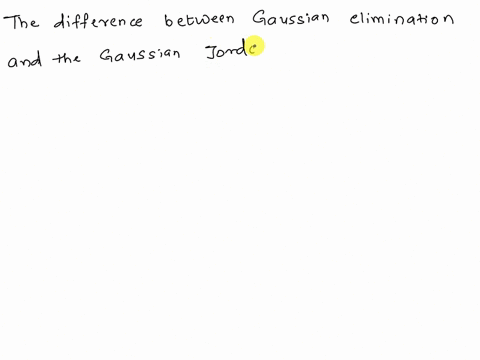 The difference between Gaussian elimination
and the Gaussian Jorda